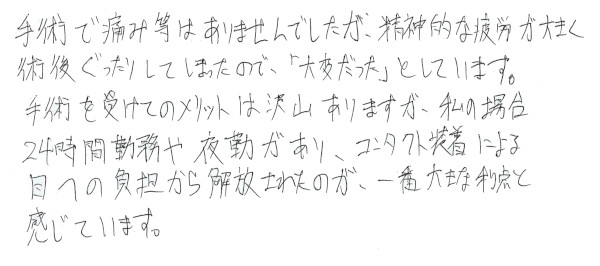 手術で痛み等はありませんでしたが、精神的な疲労が大きく
術後ぐったりしてしまったので、「大変だった」としています。
手術を受けてのメリットは沢山ありますが、私の場合
24時間勤務や夜勤があり、コンタクト装着による
目への負担から解放されたのが、一番大きな利点と
感じています。